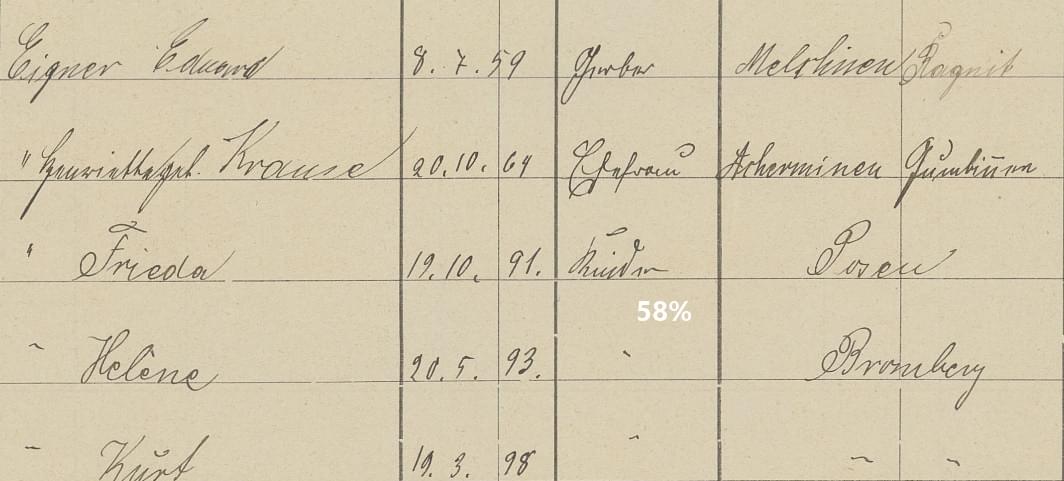 Eigner Eduard 8. 7. 59 Gerber Melohnen Ragnit
" Henriette geb. Krause 20. 10. 64 Ehefrau Ackerminen Gumbinnen
" Frieda 19. 10. 91. Kinder Posen
58%
" Helene 20. 5. 93. " Bromberg
" Kurt 19. 3. 98 " " "